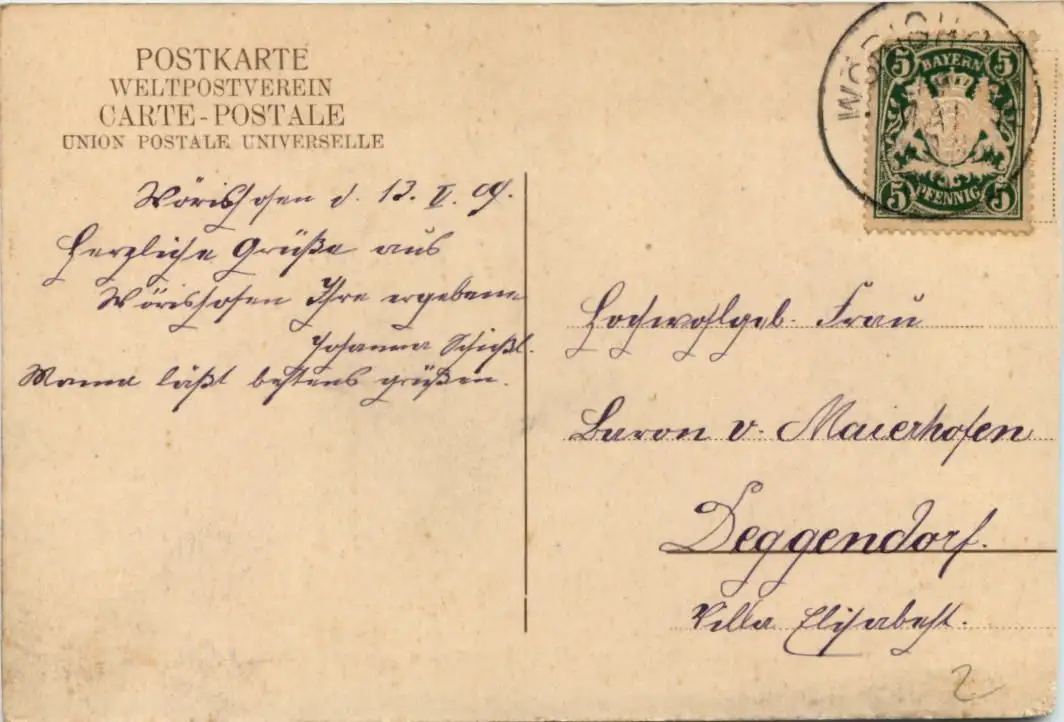 POSTKARTE
WELTPOSTVEREIN
CARTE-POSTALE
UNION POSTALE UNIVERSELLE
Wörishofen d. 13. V. 09.
Herzliche Grüße aus
Wörishofen Ihre ergebene
Johanna Schießl.
Mama läßt bestens grüßen.
5 BAYERN 5
5 PFENNIG 5
Hochwohlgeb. Frau
Baron v. Maierhofen
Deggendorf.
Villa Elisabeth.
2